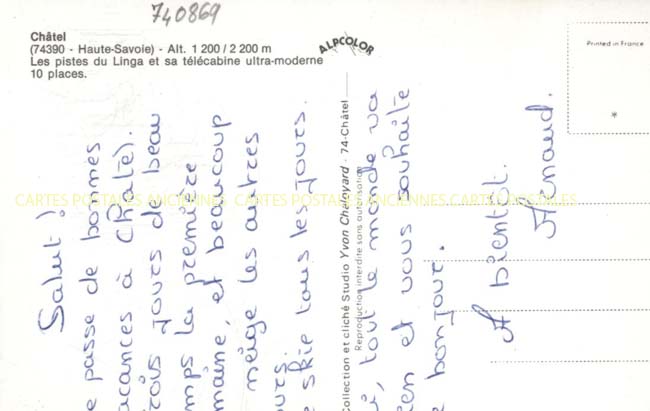 740869
Châtel
(74390 - Haute-Savoie) - Alt. 1 200 / 2 200 m
Les pistes du Linga et sa télécabine ultra-moderne
10 places.
ALPCOLOR
Printed in France
*
Collection et cliché Studio Yvon Chaloyard - 74-Châtel
Reproduction interdite sans autorisation
CARTES POSTALES ANCIENNES CARTES POSTALES ANCIENNES.CARTES POSTALES
Salut!
e passe de bonnes
acances à Châtel.
rois jours de beau
mps la première
maine, et beaucoup
neige les autres
ours.
e skie tous les jours.
i, tout le monde va
ien et vous souhaite
e bonjour.
A bientôt.
Arnaud.